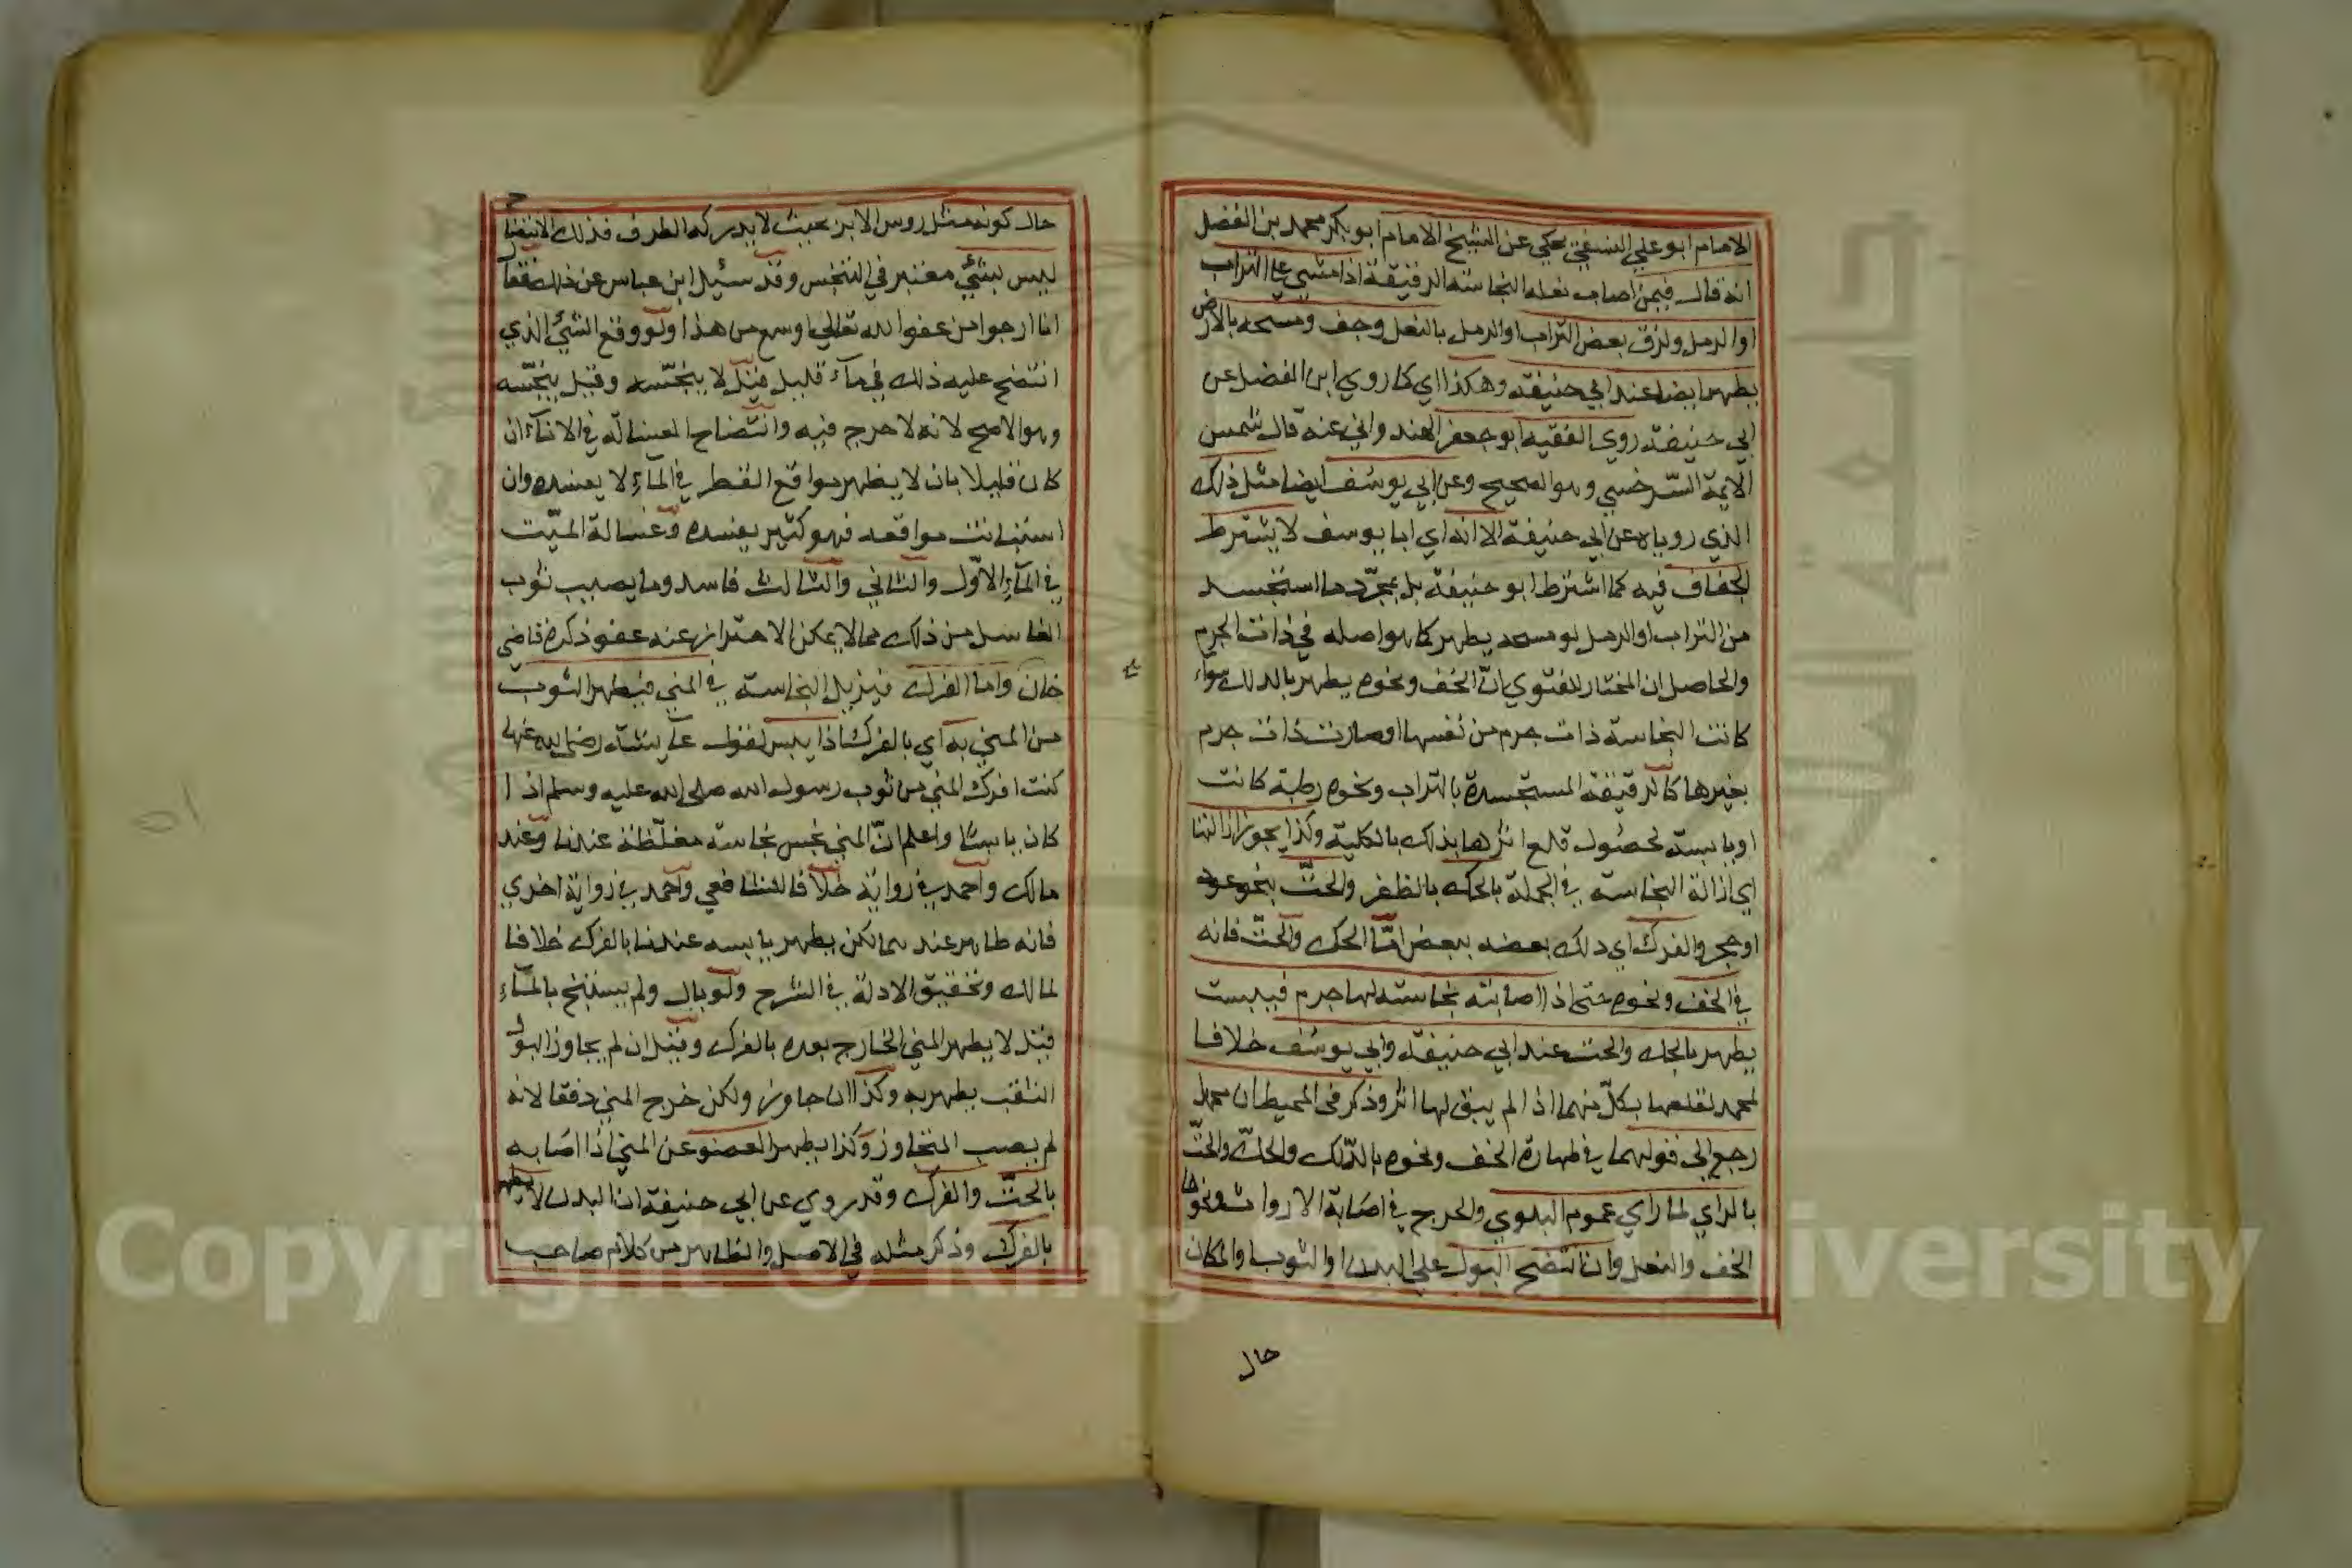 الامام ابو علي النسفي يحكي عن الشيخ الامام ابو بكر محمد بن الفضل
انه قال فيمن اصاب نعله النجاسته الرقيقة اذا مشي علي التراب
او الرمل ولزق بعض التراب او الرمل بالنعل وجف ومسحه بالارض
يطهر ايضا عند ابي حنيفة وهكذا اي كما روي ابن الفضل عن
ابي حنيفة روي الفقيه ابو جعفر الهندواني عنه قال شمس
الايمة السّرخسي وهو الصحيح وعن ابي يوسف ايضا مثل ذلك
الذي روياه عن ابي حنيفة الا انه اي ابا يوسف لا يشترط
الجفاف فيه كما اشترط ابو حنيفة بل بمجرّد ما استجسد
من التراب او الرمل لو مسحه يطهر كما هو اصله في ذات الجرم
والحاصل ان المختار للفتوي انّ الخف ونحوه يطهر بالدلك سواء
كانت النجاسة ذات جرم من نفسها او صارت ذات جرم
بغيرها كالرقيقة المستجسدة بالتراب ونحوه رطبة كانت
او يابسة لحصول قلع اثرها بذلك بالكلية وكذا يجوز ازالتها
اي ازالة النجاسة في الجملة بالحك بالظفر والحتّ بنحو عود
او حجر والفرك اي دلك بعضه ببعض امّا الحك والحتّ فانه
في الخف ونحوه حتى اذا اصابته نجاسته لها جرم فيبست
يطهر بالحك والحت عند ابي حنيفة وابي يوسف خلافا
لمحمد لقلعها بكلّ منهما اذا لم يبق لها اثر وذكر في المحيط ان محمد
رجع الى قولهما في طهارة الخف ونحوه بالدّلك والحكّ والحتّ
بالراي لما راي عموم البلوي والحرج في اصابة الارواث ونحوها
الخف والنعل وان انتضح البول علي البدن او الثوب او المكان
حال
حال كونه مثل روس الابر بحيث لا يدركه الطرف فذلك الانتضاح
ليس بشيء معتبر في التنجس وقد سئيل ابن عباس عن ذلك فقال
انا ارجوا من عفو الله تعالي اوسع من هذا ولو وقع الشيء الذي
انتضح عليه ذلك في مآء قليل قيل لا ينجّسه وقيل ينجّسه
وهو الاصح لانه لا حرج فيه وانتضاح الغسالة في الانآء ان
كان قليلا بان لا يظهر مواقع القطر في المآء لا يفسده وان
استبانت مواقعه فهو كثير يفسده وغسالة الميّت
في المآء الاوّل والثاني والثالث فاسد وما يصيب ثوب
الغاسل من ذلك مما لا يمكن الاحتراز عنه عفو ذكره قاضي
خان واما الفرك فيزيل النجاسته في المني فيطهر الثوب
من المني به اي بالفرك اذا يبس لقول عايشة رضي الله عنها
كنت افرك المني من ثوب رسول الله صلى الله عليه وسلم اذا
كان يابسا واعلم انّ المني نجس نجاسته مغلّظة عندنا وعند
مالك واحمد في رواية خلافا للشافعي واحمد في رواية اخري
فانه طاهر عندهما لكن يطهر يابسه عندنا بالفرك خلافا
لمالك وتحقيق الادلة في الشرح ولو بال ولم يستنج بالمآء
قيل لا يطهر المني الخارج بعده بالفرك وقيل ان لم يجاوز البول
الثقب يطهر به وكذا ان جاوز ولكن خرج المني دفقا لانه
لم يصب المتجاوز وكذا يطهر العضو عن المني اذا اصابه
بالحتّ والفرك وقد روي عن ابي حنيفة ان البدن لا يطهر
بالفرك وذكر مثله في الاصل والظاهر من كلام صاحب
Copyright © King Saud University